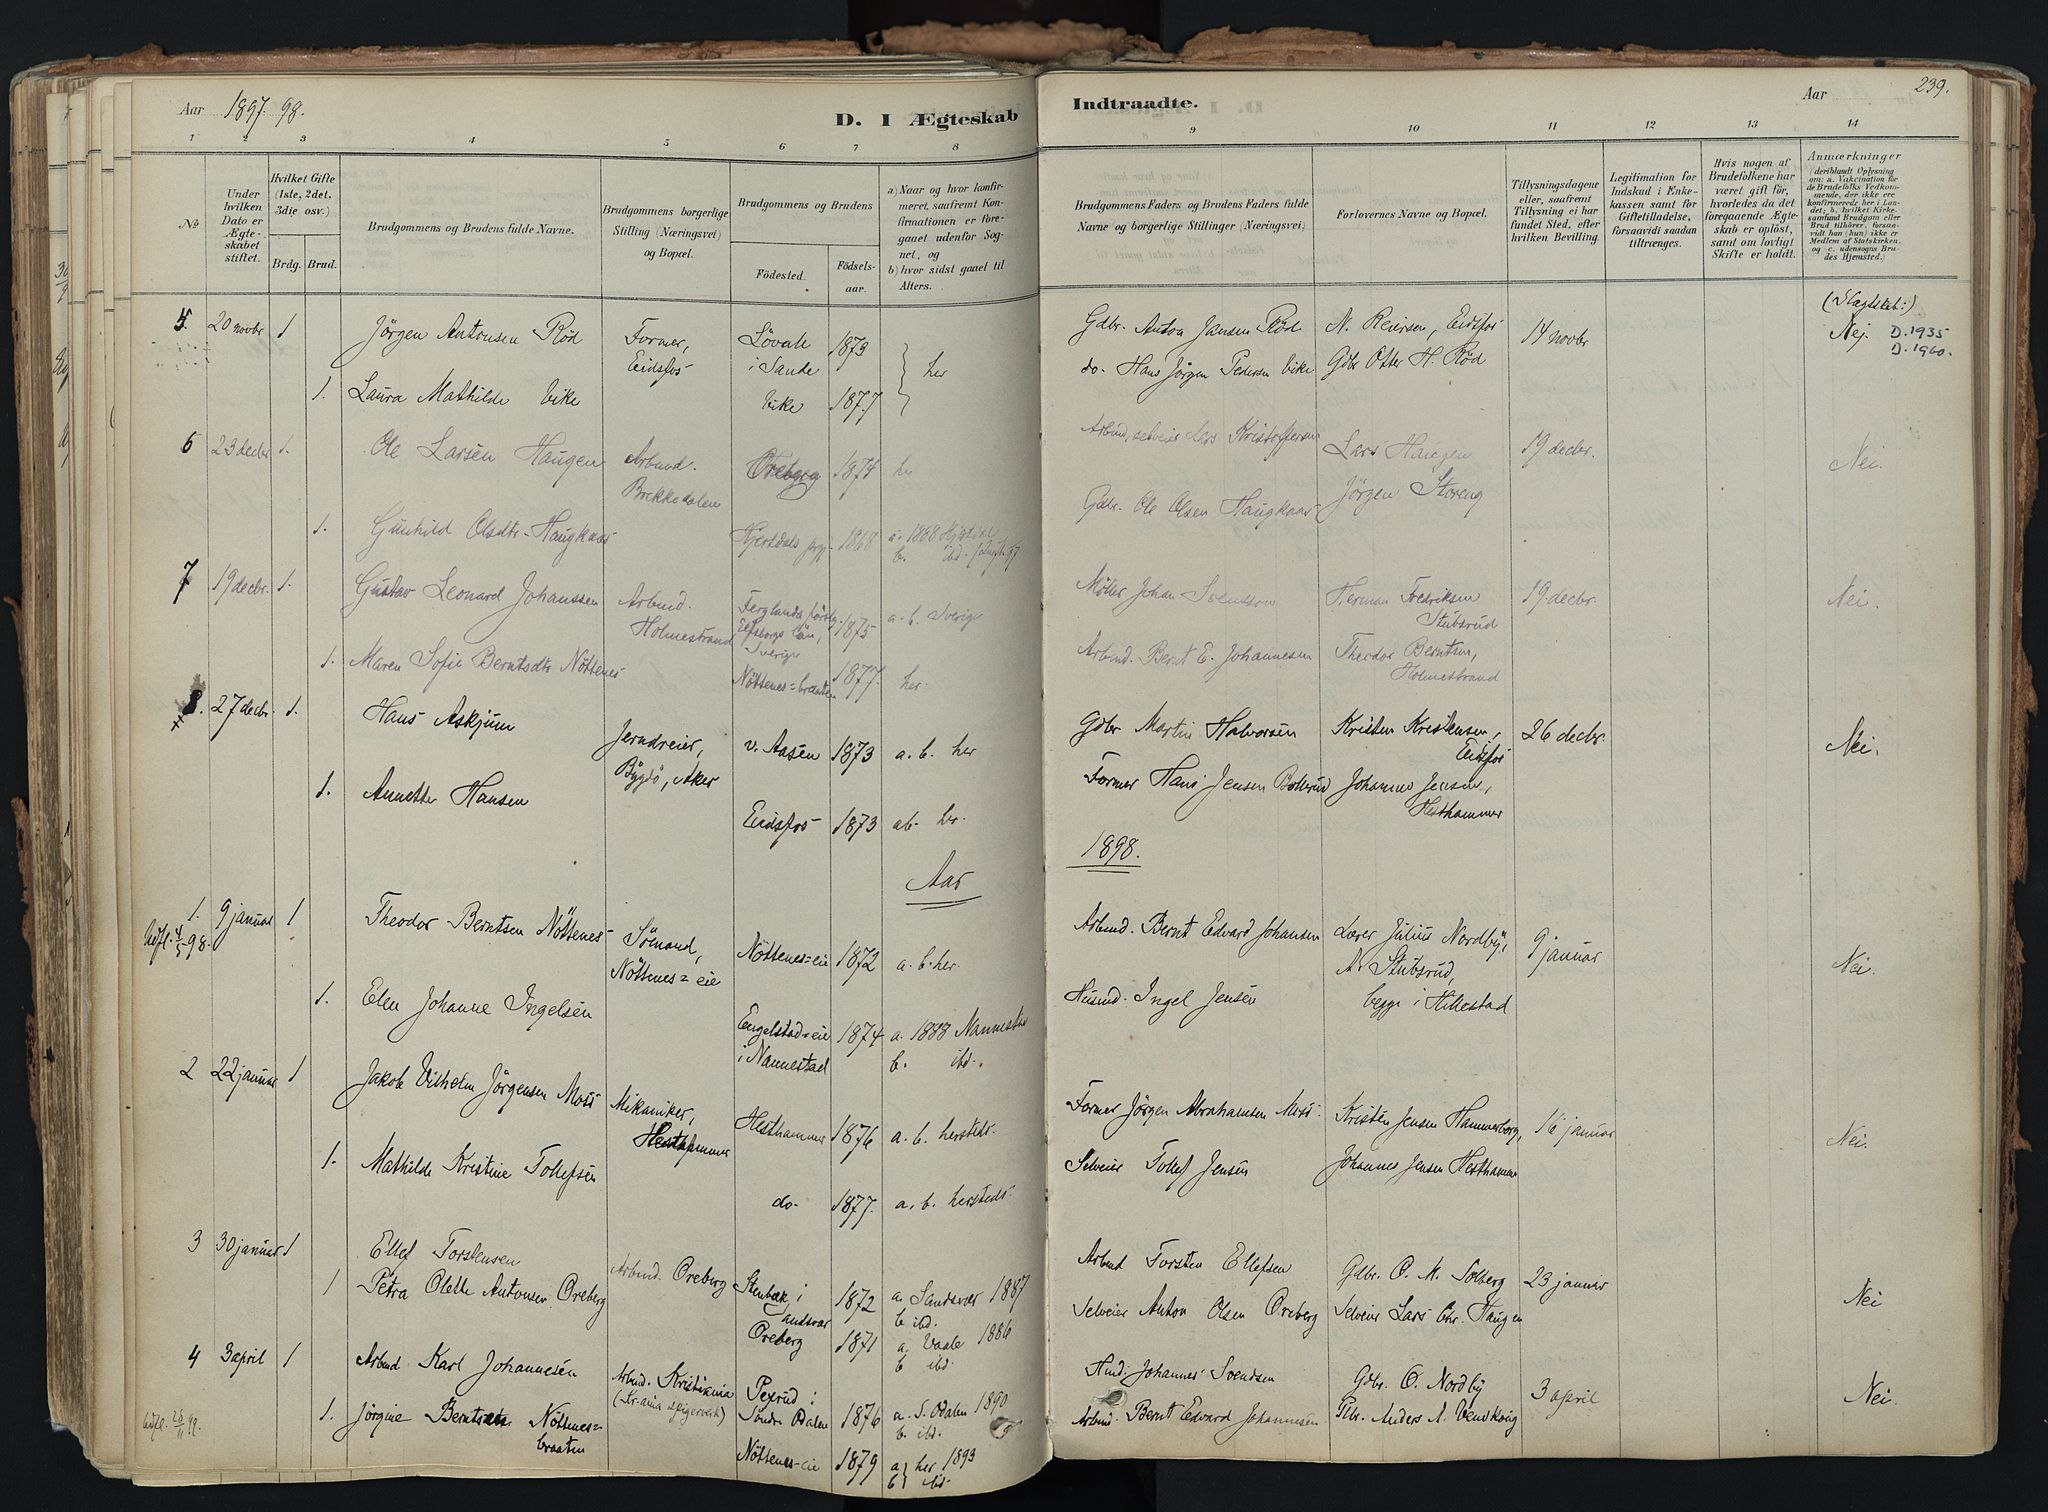 Aar 1897. 98.
D. I Ægteskab
Indtraadte.
Aar
239.
1 2 3 4 5 6 7 8
9 10 11 12 13 14
No
Under hvilken Dato er Ægteskabet stiftet.
Hvilket Gifte (1ste, 2det, 3die osv.)
Brdg. Brud.
Brudgommens og Brudens fulde Navne.
Brudgommens borgerlige Stilling (Næringsvei) og Bopæl.
Brudgommens og Brudens
Födested.
Födsels-aar.
a) Naar og hvor konfirmeret, saafremt Konfirmationen er foregaaet udenfor Sognet, og
b) hvor sidst gaaet til Alters.
Brudgommens Faders og Brudens Faders fulde Navne og borgerlige Stillinger (Næringsvei)
Forlovernes Navne og Bopæl.
Tillysningsdagene eller, saafremt Tillysning ei har fundet Sted, efter hvilken Bevilling.
Legitimation for Indskud i Enkekassen samt for Giftetilladelse, forsaavidt saadan tiltrænges.
Hvis nogen af Brudefolkene har været gift för, hvorledes da det foregaaende Ægteskab er oplöst, samt om lovligt Skifte er holdt.
Anmærkninger
(deriblandt Oplysning om: a. Vakcination for de Brudefolks Vedkommende, der ikke ere konfirmerede her i Landet; b. hvilket Kirkesamfund Brudgom eller Brud tilhörer, forsaavidt han (hun) ikke er Medlem af Statskirken, og c. udensogns Brudes Hjemsted.)
5. 20 novbr 1 Jörgen Antonsen Röd Former, Eidsfos Lövald i Sande 1873 her
Gdbr. Anton Jansen Röd N. Reiersen, Eidsfos 14 novbr (Slægtskab:) Nej. D. 1935
D. 1960.
1. Laura Mathilde Vike Vike 1877
do. Hans Jörgen Pedersen Vike Gdbr Otter H. Röd
6 23 decbr 1. Ole Larsen Haugen Arbmd. Brekkedalen Oreberg 1874 her
Arbmd, selveier Lars Kristoffersen Lars Haugen 19 decbr. Nei.
1. Gunhild Olsdtr. Haugkaas Hjertdals 1868 a. 1888 Hjertdal
b. ibd.
Gdbr. Ole Olsen Haugkaas Jörgen Storeng
7 19 decbr. 1. Gustav Leonard Johanssen Arbmd. Holmestrand Elfsborgs län, Sverige 1875 a. b. Sverige
Möller Johan Svensson Herman Fredriksen Stubsrud 19. decbr. Nei.
1. Maren Sofie Berntsdtr Nöttenes Nöttenes=braaten 1877. her.
Arbmd. Bernt E. Johannesen Theodor Berntsen, Holmestrand
8. 27 decbr. 1. Hans Askjum Jerndreier, Bygdö, Aker v. Aasen 1873 a. b. her
Gdbr Martin Halvorsen Kristen Kristensen, Eidsfos 26 decbr. Nei.
1. Annette Hansen Eidsfos 1873 ab. her.
Former Hans Jensen Bollerud Johannes Jensen, Hesthammer
Aar 1898.
1. 9 januar 1 Theodor Berntsen Nöttenes Sömand, Nöttenes=eie Nöttenes=eie 1872 a. b. her.
Udfl. 4/5 98.
Arbmd. Bernt Edvard Johansen Lærer Julius Nordby, 9 januar Nei.
A. Stubsrud,
begge i Hillestad
1. Elen Johanne Ingelsen Engelstad=eie i Nannestad 1874 a. 1888 Nannestad
b. ibd.
Husmd. Ingel Jensen
2 22 januar 1 Jakob Vilhelm Jörgensen Moss Mikaniker, Hesthammer Hesthammer 1876 a. b. hersteds.
Former Jörgen Abrahamsen Moss Kristen Jensen Hammerborg, 16 januar Nei.
1. Mathilde Kristine Tollefsen do. 1877. a. b. hersteds.
Selveier Tollef Jensen Johannes Jensen Hesthammer
3 30 januar 1 Ellef Torstensen Arbmd. Oreberg Stenbæk i Sandsvær 1872 a. Sandsvær 1887
b. ibd.
Arbmd Torsten Ellefsen Gdbr. O. M. Solberg 23 januar Nei
1 Petra Olette Antonsen Oreberg Oreberg 1871 a. Vaale 1886
b. ibd.
Selveier Anton Olsen Oreberg Selveier Lars Chr. Haugen
4 3 april 1 Arbmd Karl Johannesen Arbmd. Kristiania
(Kr.ania Spigerverk) Pexrud i Söndre Odalen 1876 a. S. Odalen 1890
b. ibd.
Hmd. Johannes Svendsen Gdbr. O. Nordby 3 april Nei.
Udfl. 26/11 99.
1. Jörgine Berntsdtr. Nöttenes=braaten Nöttenes-eie 1879 a) her 1893
b) ibd.
Arbmd. Bernt Edvard Johannesen Plbr. Anders A. Vemkvig